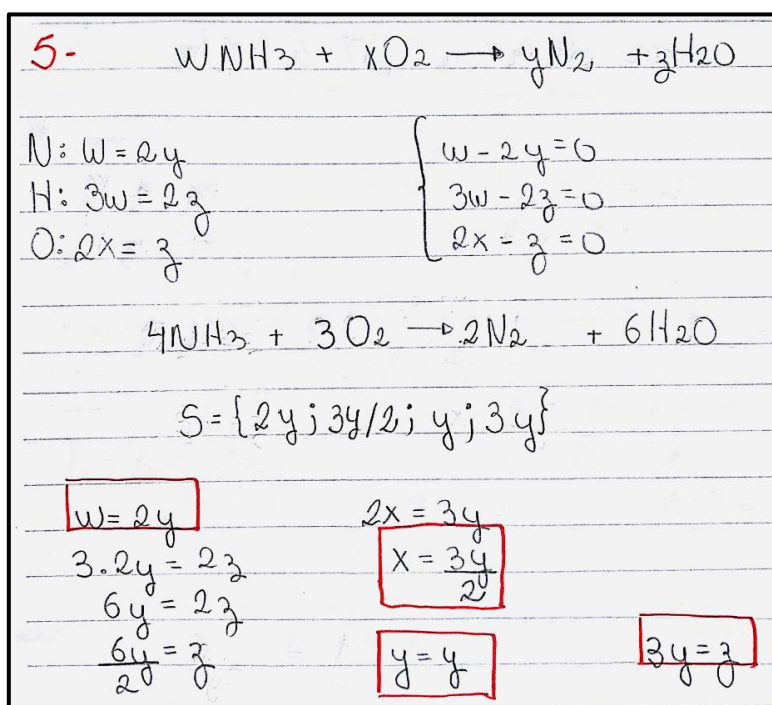 5- WNH3 + xO2 → yN2 + zH2O
N: W = 2y
H: 3w = 2z
O: 2x = z
w - 2y = 0
3w - 2z = 0
2x - z = 0
4NH3 + 3O2 → 2N2 + 6H2O
S = {2y; 3y/2; y; 3y}
w = 2y
3.2y = 2z
6y = 2z
6y/2 = z
2x = 3y
x = 3y/2
y = y
3y = z